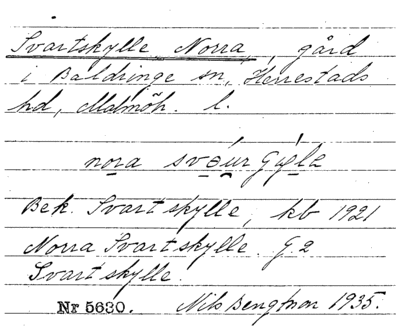 Svartskylle, Norra, gård
i Baldringe sn, Herrestads
hd, Malmöh. l.
nora
Bek. Svartskylle, kb 1921
Norra Svartskylle. G 2
Svartskylle.
Nr 5630. Nils Bengtson 1935.